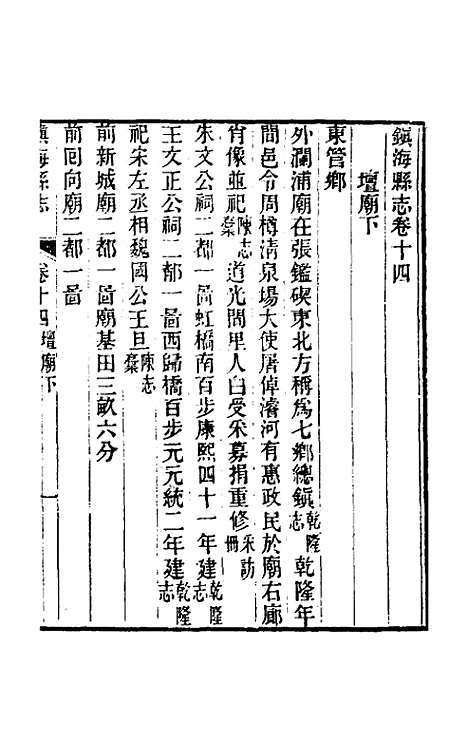 鎮海縣志卷十四
壇廟下
東管鄉
外瀾浦廟在張鑑碶東北方稱爲七鄉總鎮乾隆志 乾隆年
間邑令周樽淸泉場大使屠倬濬河有惠政民於廟右廊
肖像並祀陳志稾 道光間里人白受釆募捐重修釆訪冊
朱文公祠二都一啚虹橋南百步康熙四十一年建乾隆志
王文正公祠二都一啚西歸橋百步元元統二年建乾隆志
祀宋左丞相魏國公王旦陳志稾
前新城廟二都一啚廟基田三畝六分
前囘向廟二都一啚
鎮海縣志 卷十四 壇廟下 一